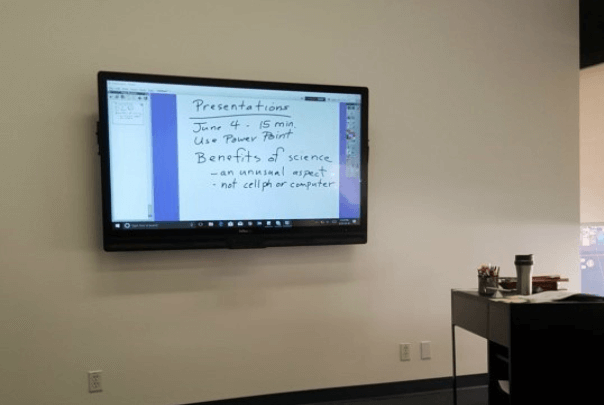 Presentations
June 4 - 15 min.
Use Power Point
Benefits of science
- an unusual aspect
- not cellph or computer